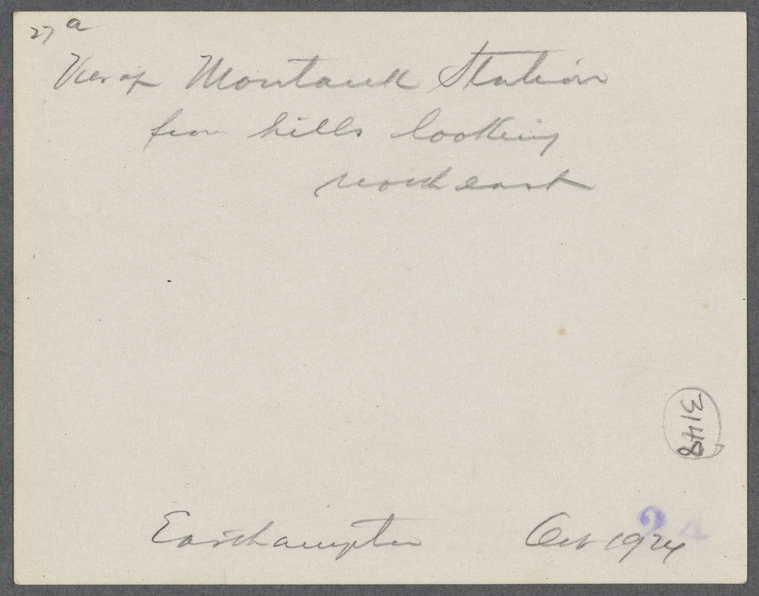 27 a
View of Montauk Station
from hills looking
northeast
3148
Easthampton Oct 1924
24